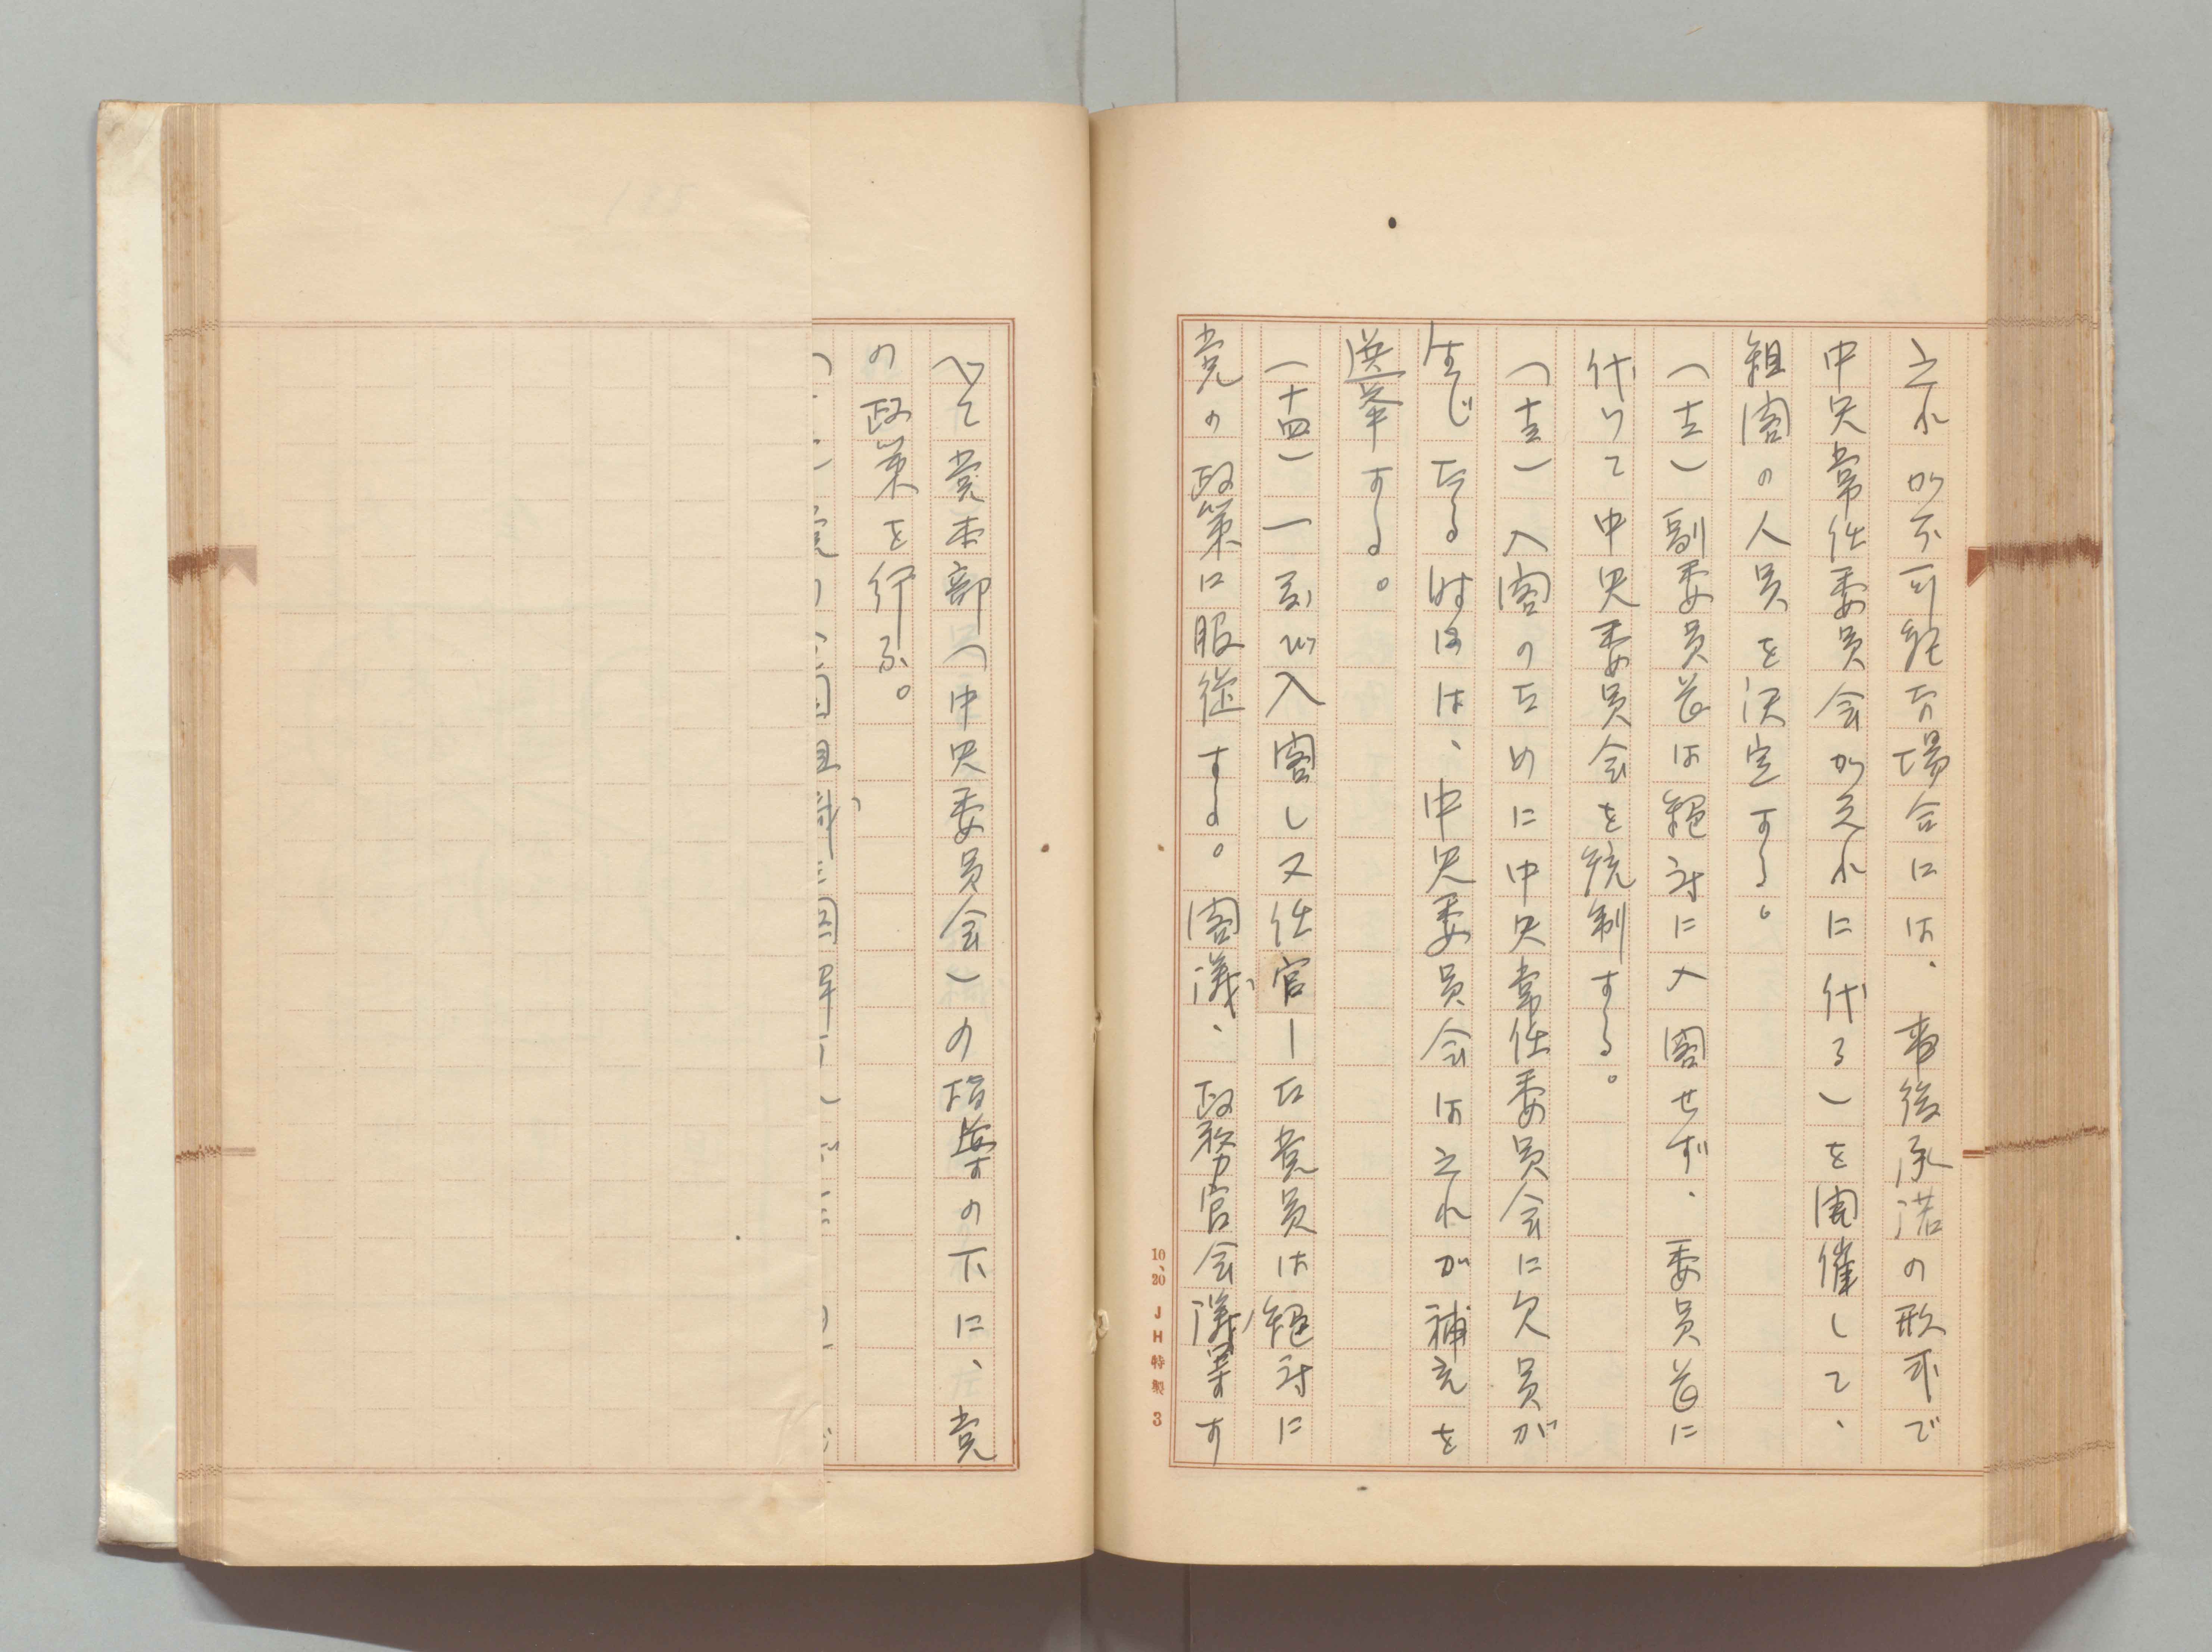 之れが不可能な場合には、事後承諾の形式で
中央常任委員会が之れに代る)を開催して、
組閣の人員を決定する。
(十二)副委員長は絶対に入閣せず、委員長に
代りて中央委員会を統制する。
(十三)入閣のために中央常任委員会に欠員が
生じたる時は、中央委員会は之れが補充を
選挙する。
(十四)一 入閣し又任官した党員は絶対に
党の政策に服従する。閣議、政務官会議等す
べて党本部(中央委員会)の指導の下に、党
の政策を行ふ。
10、20 JH特製 3